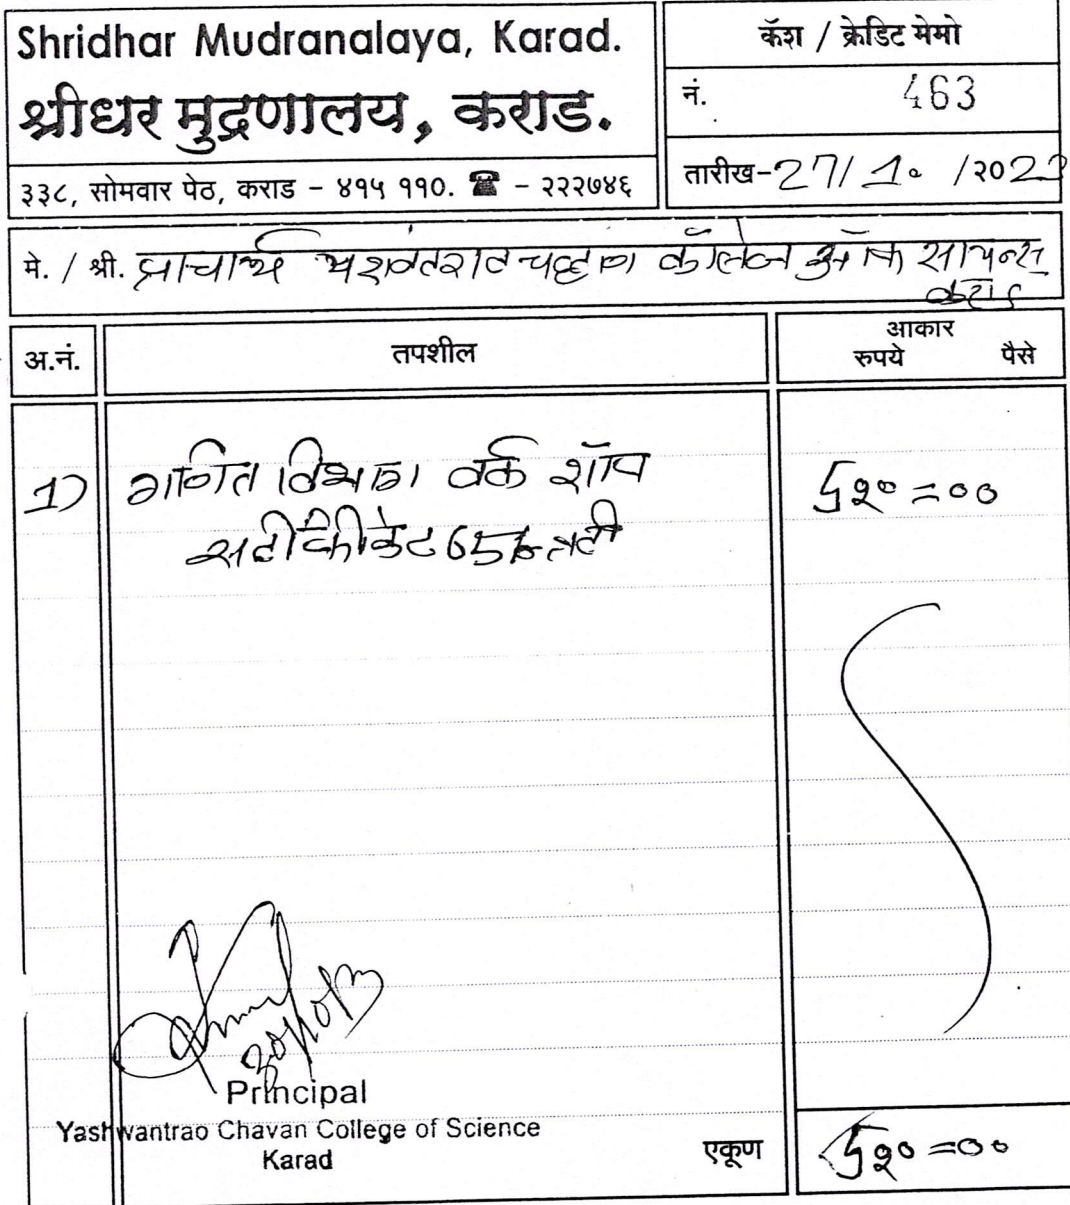 Shridhar Mudranalaya, Karad.
श्रीधर मुद्रणालय, कराड.
३३८, सोमवार पेठ, कराड - ४१५ ११०. ☎ - २२२७४६
कॅश / क्रेडिट मेमो
नं. 463
तारीख-27/10/२०23
मे. / श्री. प्राचार्य यशवंतराव चव्हाण कॉलेज ऑफ सायन्स
कराड
अ.नं. तपशील आकार
रुपये पैसे
1) गणित विभाग वर्क शॉप 5२०=००
सर्टीफीकेट 65
Principal
Yashwantrao Chavan College of Science
Karad
एकूण 5२०=००